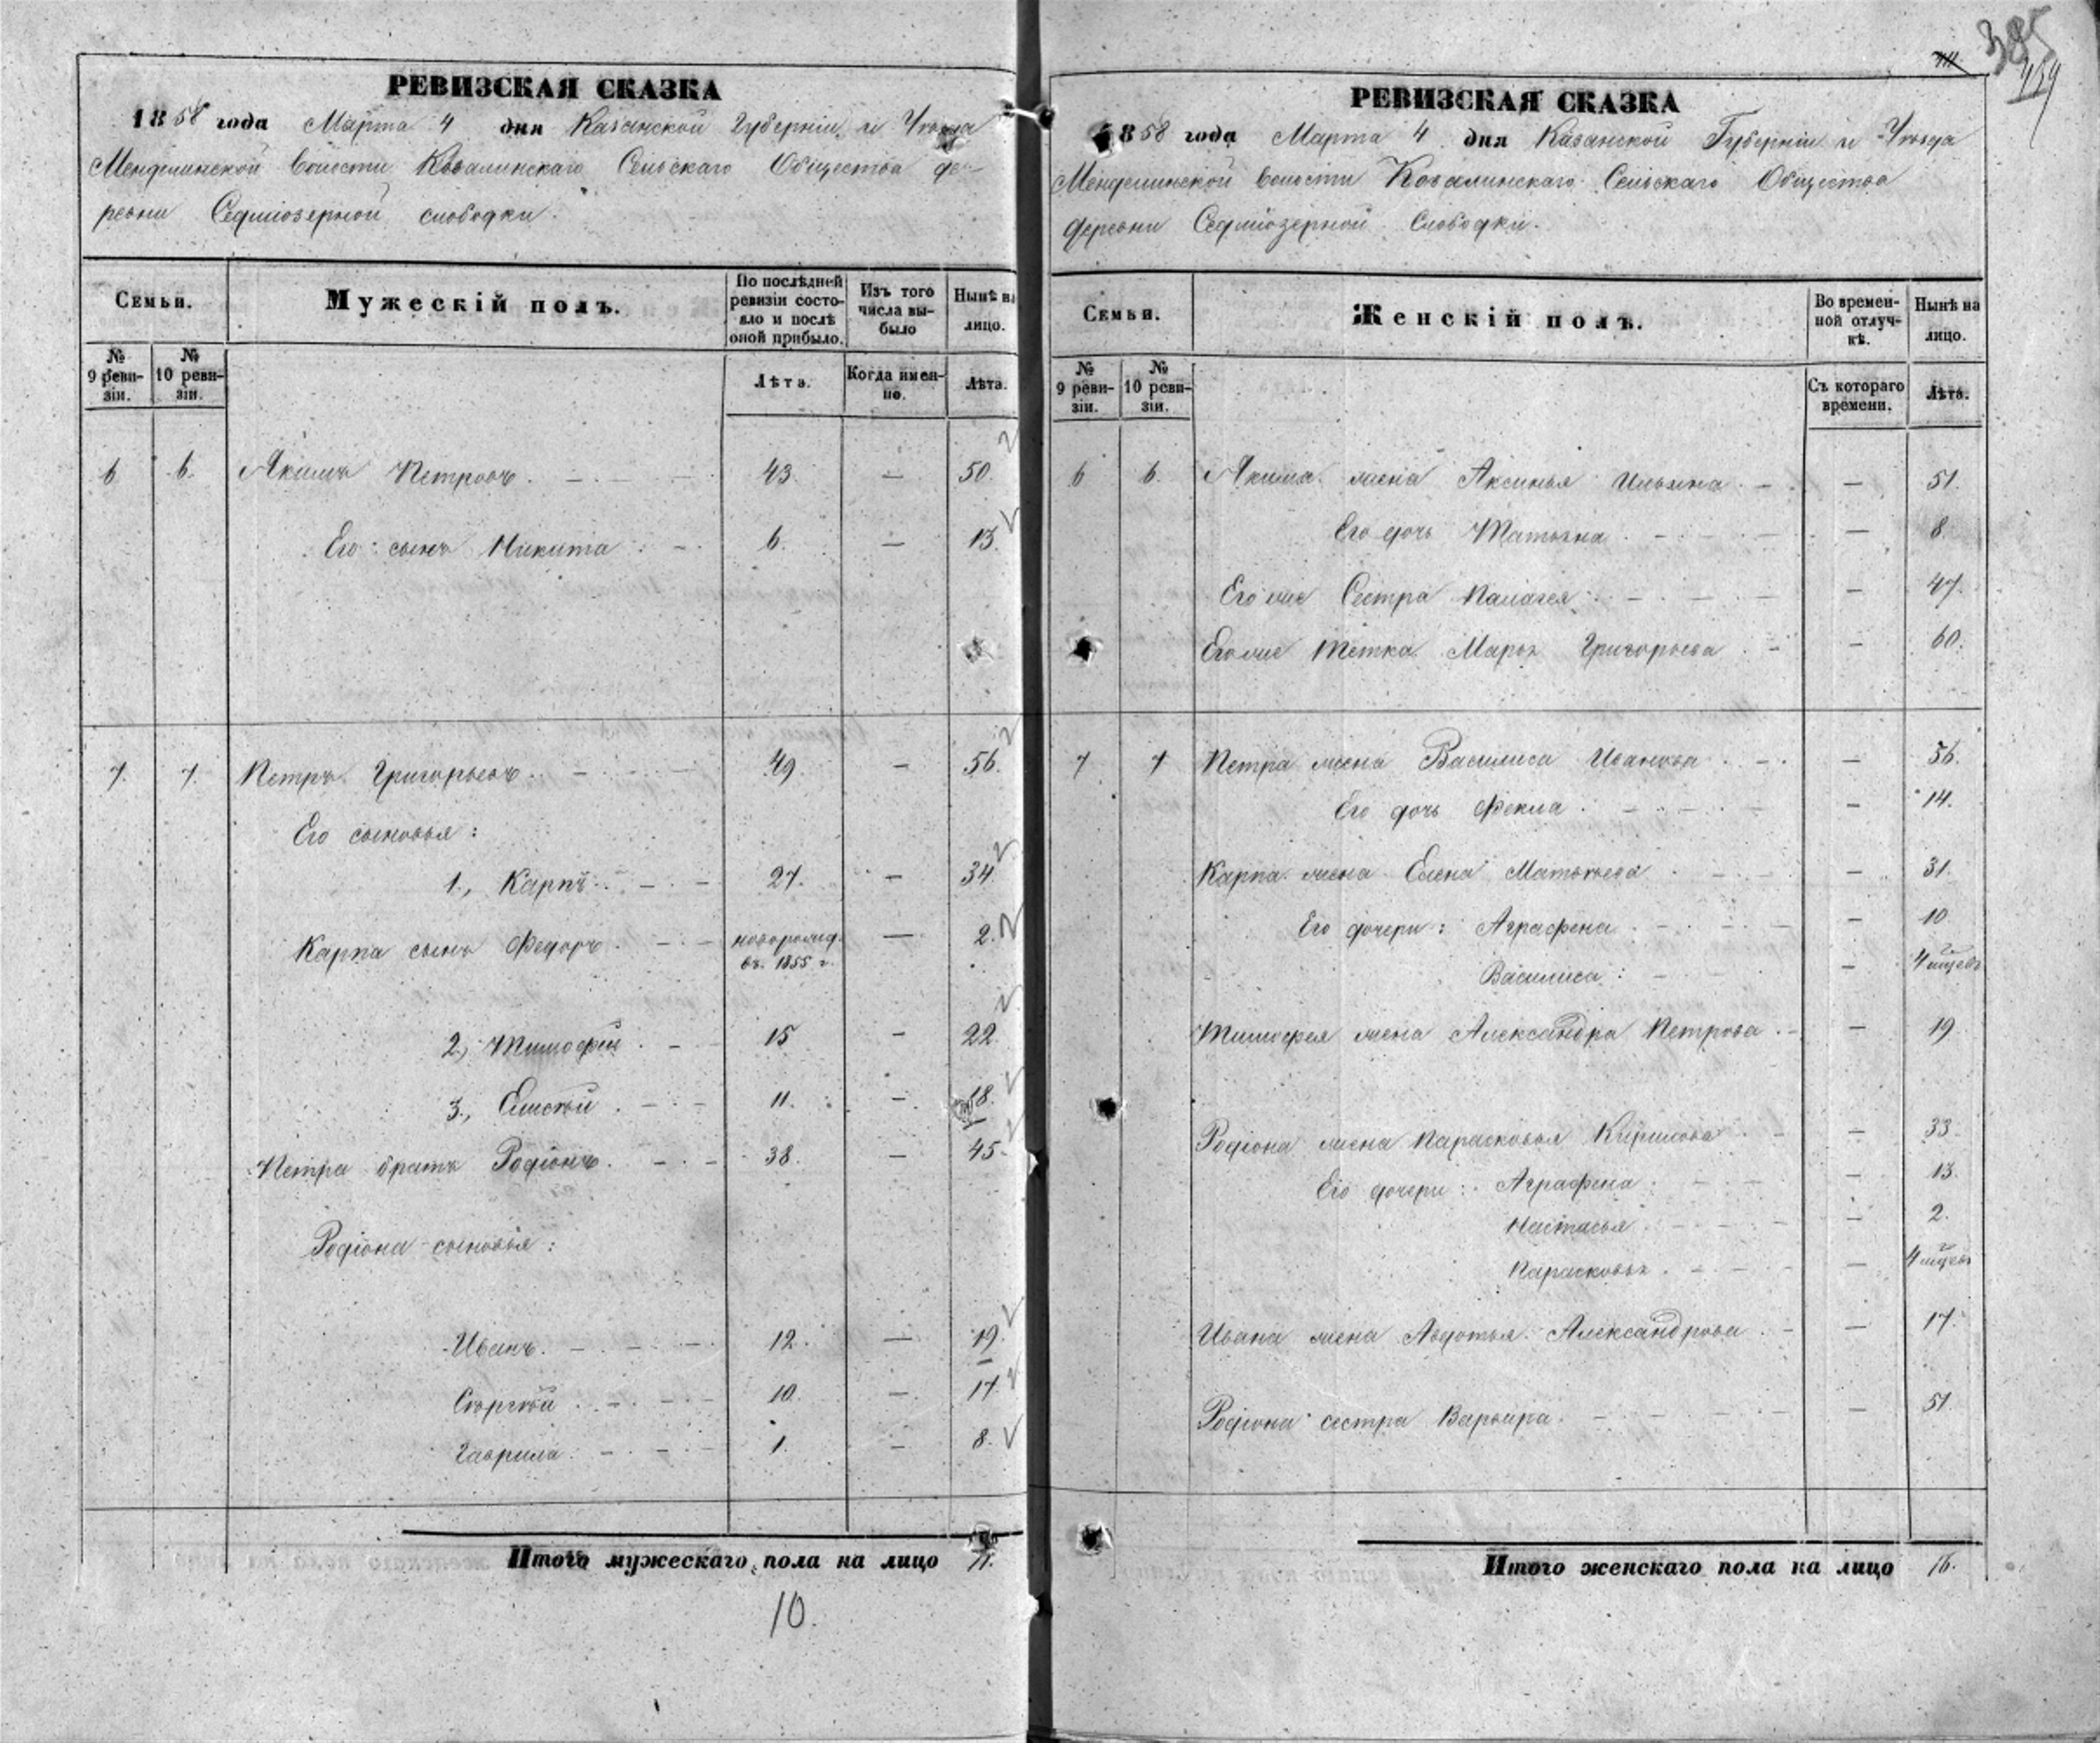 РЕВИЗСКАЯ СКАЗКА
1858 года Марта 4 дня Казанской Губерніи и Уѣзда
Менделинской Волости Ковалинскаго Сельскаго Общества де-
ревни Седміозерной слободки.
Семьи.
Мужескій полъ.
По послѣдней ревизіи состояло и послѣ оной прибыло.
Изъ того числа выбыло
Нынѣ на лицо.
№ 9 ревизіи.
№ 10 ревизіи.
Лѣта.
Когда именно.
Лѣта.
6 6. Акимъ Петровъ. 43. — 50.
Его сынъ Никита 6. — 13.
7. 7. Петръ Григорьевъ. 49 — 56.
Его сыновья:
1., Карпъ 27. — 34.
Карпа сынъ Федоръ. новорожд. — 2.
въ 1855 г.
2., Тимофѣй 15 — 22.
3., Елисѣй 11. — 18.
Петра братъ Родіонъ. 38. — 45.
Родіона сыновья:
Иванъ. 12. — 19.
Сергѣй 10. — 17.
Гаврила 1. — 8.
Итого мужескаго пола на лицо 11.
10.
385
459
РЕВИЗСКАЯ СКАЗКА
1858 года Марта 4 дня Казанской Губерніи и Уѣзда
Менделинской Волости Ковалинскаго Сельскаго Общества
деревни Седміозерной Слободки.
Семьи.
Женскій полъ.
Во временной отлучкѣ.
Нынѣ на лицо.
№ 9 ревизіи.
№ 10 ревизіи.
Съ котораго времени.
Лѣта.
6 6. Акима жена Аксинья Ильина — 51.
Его дочь Татьяна — 8.
Его же Сестра Палагея — 47.
Его же тетка Марья Григорьева — 60.
7 7 Петра жена Василиса Иванова — 56.
Его дочь Фекла — 14.
Карпа жена Елена Матвѣева — 31.
Его дочери: Аграфена — 10
Василиса — 4 мѣсец
Тимофея жена Александра Петрова — 19
Родіона жена Парасковья Кирилова — 33.
Его дочери: Аграфена — 13.
Настасья — 2.
Парасковья — 4 мѣсец
Ивана жена Авдотья Александрова — 17.
Родіона сестра Варвара. — 51.
Итого женскаго пола на лицо 16.